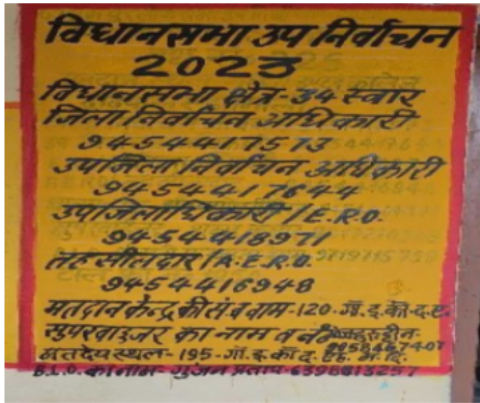 विधानसभा उप निर्वाचन
2023
विधानसभा क्षेत्र-34 स्वार
जिला निर्वाचन अधिकारी
9454417573
उपजिला निर्वाचन अधिकारी
9454417644
उपजिलाधिकारी / E.R.O.
9454418971
तहसीलदार / A.E.R.O.
9454416948
मतदान केन्द्र की सं० व नाम-120-गाँ.इ.कॉ.द.ट.
सुपरवाइजर का नाम व नं०
मतदेय स्थल-195-गाँ.इ.कॉ.द.
B.L.O. का नाम- गुंजन प्रताप-6396813257